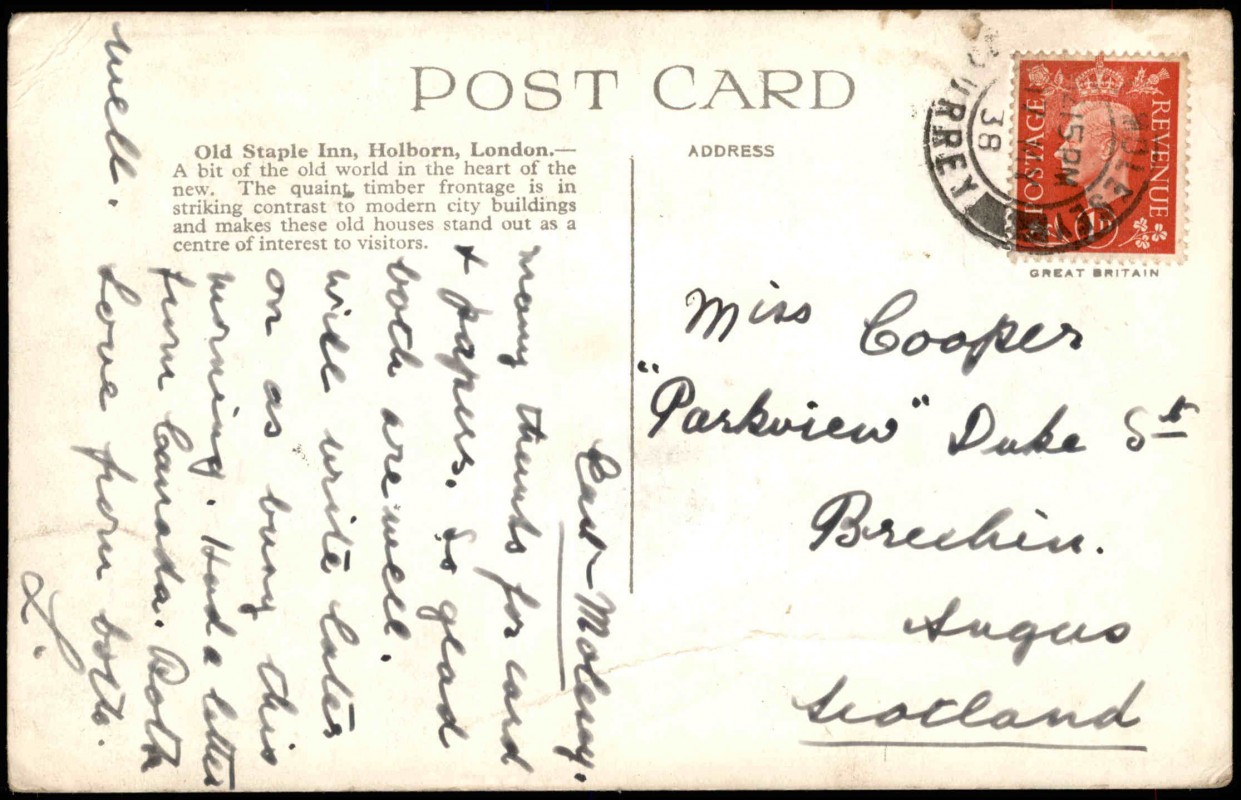 POST CARD
Old Staple Inn, Holborn, London.—
A bit of the old world in the heart of the
new. The quaint timber frontage is in
striking contrast to modern city buildings
and makes these old houses stand out as a
centre of interest to visitors.
ADDRESS
POSTAGE
REVENUE
15 PM
38
SURREY
GREAT BRITAIN
East Molesey.
Many thanks for card
& papers. So glad
both are well.
will write later
on as busy this
morning. Had a letter
from Canada. Both
well.
Love from both.
L.
Miss Cooper
"Parkview" Duke St
Brechin.
Angus
Scotland